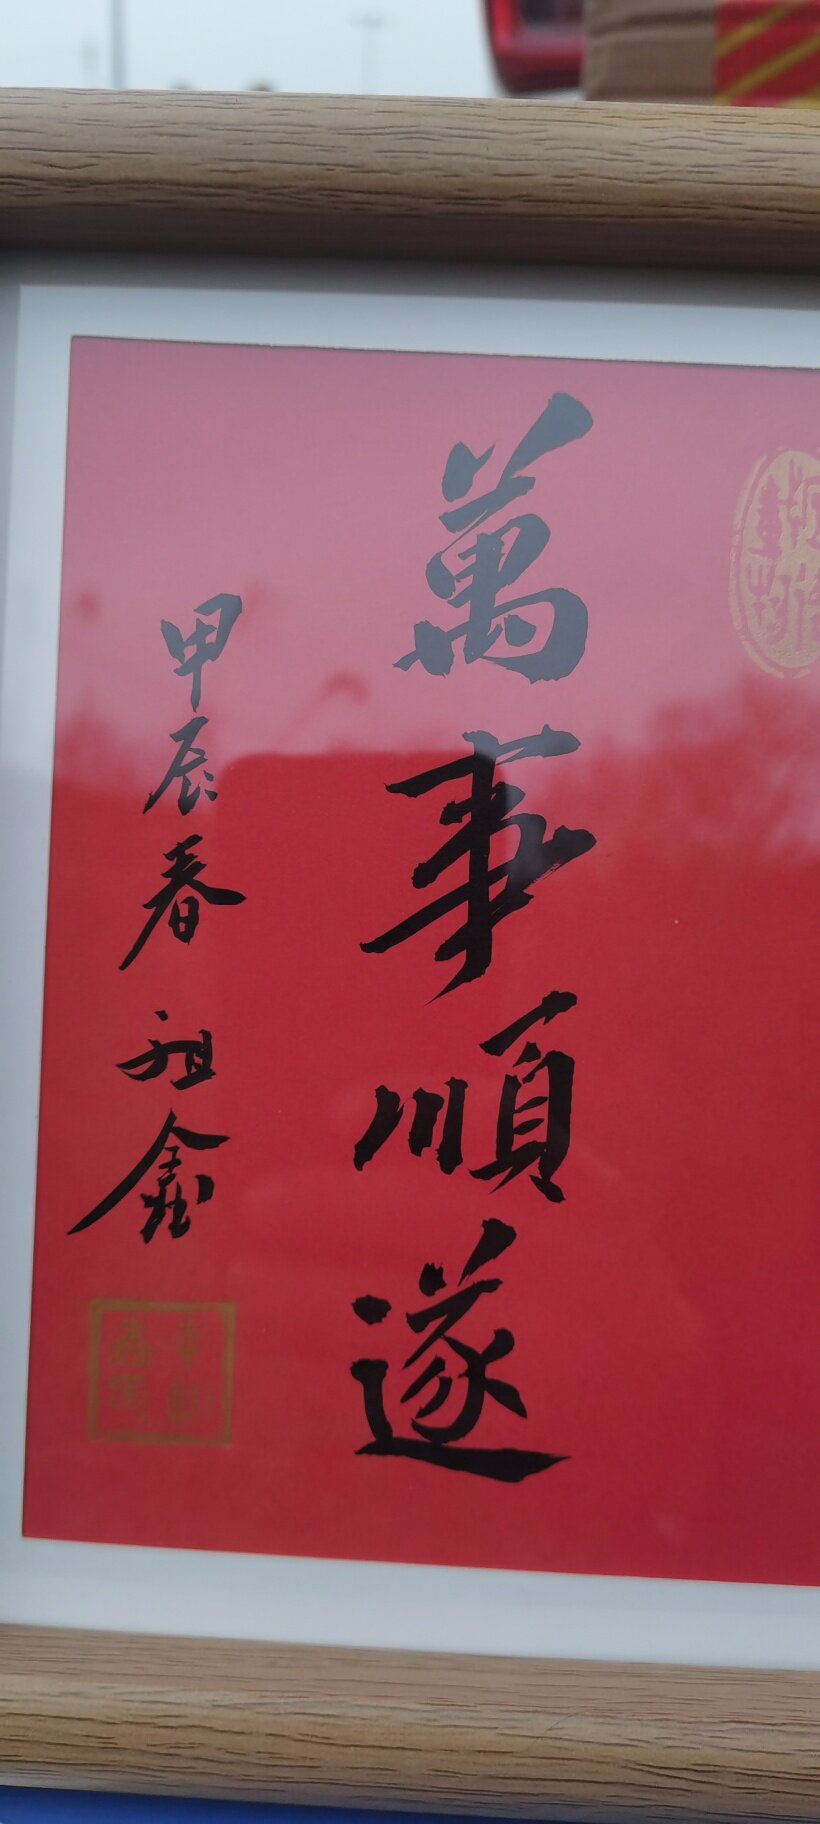 萬事順遂
甲辰春 祖鑫